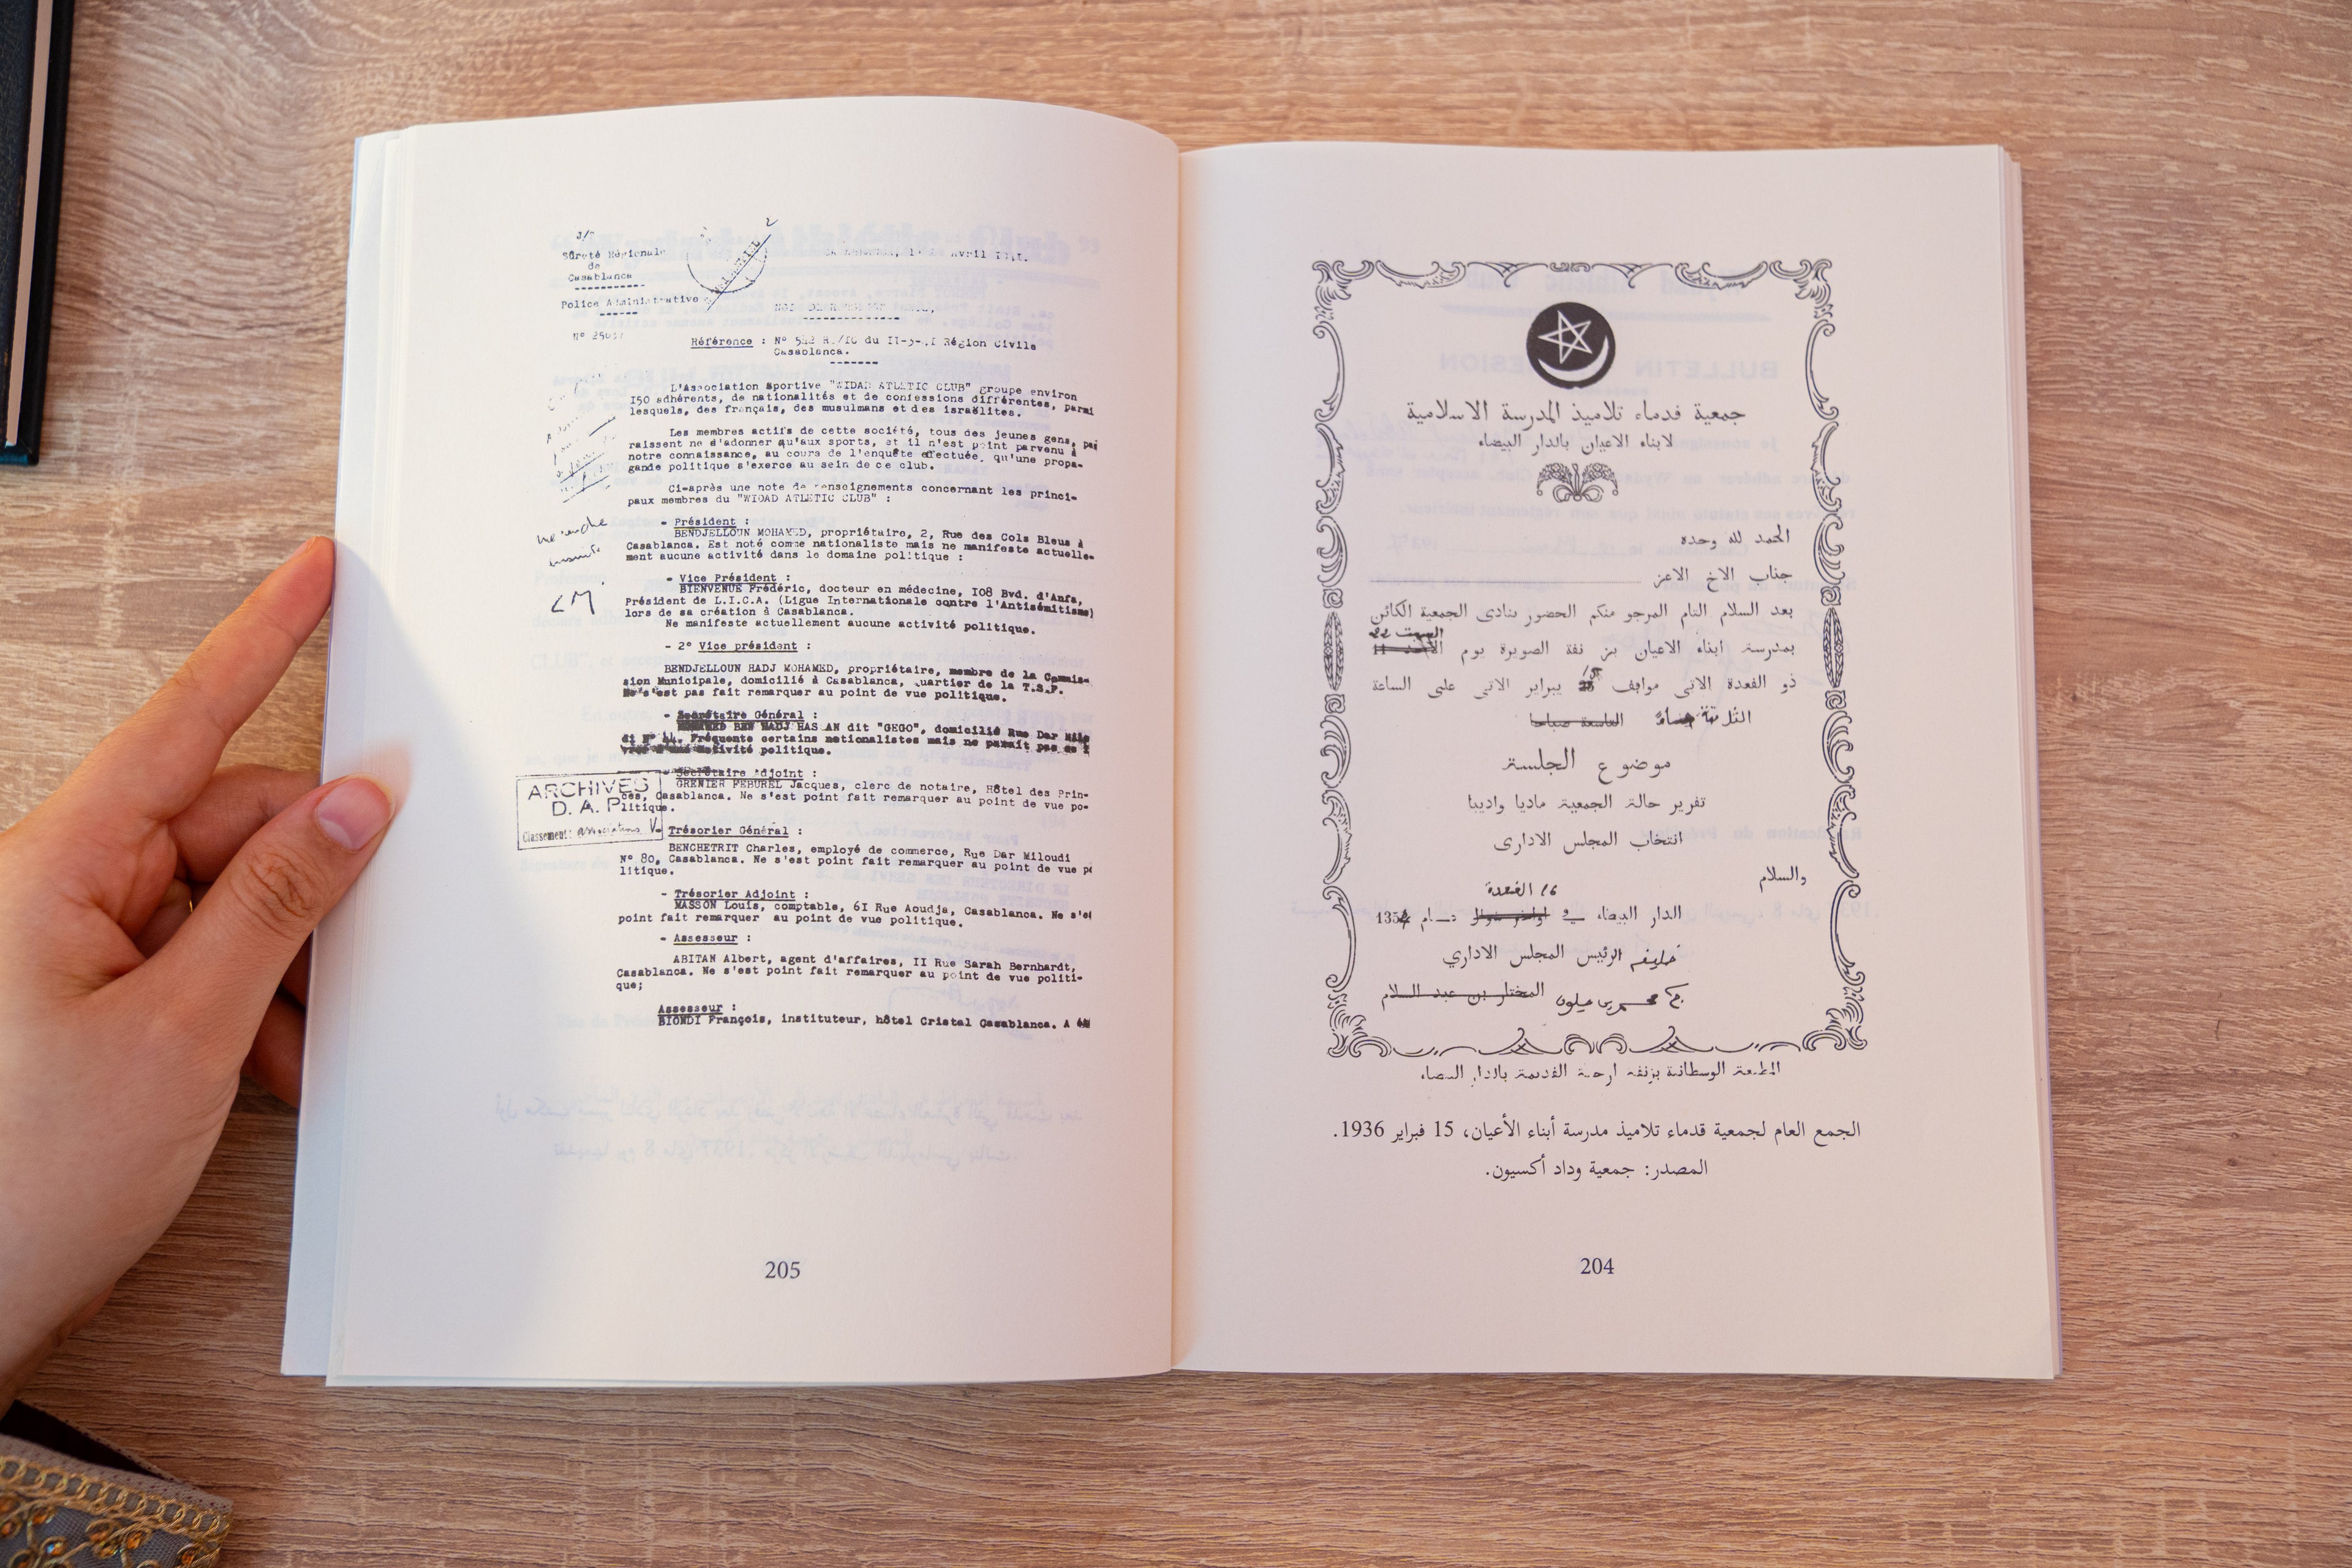 جمعية قدماء تلاميذ المدرسة الاسلامية
لابناء الاعيان بالدار البيضاء
الحمد لله وحده
جناب الاخ الاعز
بعد السلام التام المرجو منكم الحضور بنادى الجمعية الكائن
السبت 22
بمدرسة ابناء الاعيان بز نقة الصويرة يوم الاحد 11
15
ذو القعدة الاتى موافق يبراير الاتى على الساعة
التاسعة صباحا
موضوع الجلسة
تقرير حالة الجمعية ماديا وادبيا
انتخاب المجلس الادارى
والسلام
16 القعدة
الدار البيضاء في عام 1354
خليفة الرئيس المجلس الاداري
المختار بن عبد السلام
المطبعة الوسطانية بزنقة القديمة بالدار البيضاء
الجمع العام لجمعية قدماء تلاميذ مدرسة أبناء الأعيان، 15 فبراير 1936.
المصدر: جمعية وداد أكسيون.
204
Sûreté Régionale
de
Casablanca
Avril
Police Administrative
Référence : N° 592 du II-3-41 Région Civile
Casablanca.
L'Association Sportive "WIDAD ATLETIC CLUB" groupe environ
150 adhérents, de nationalités et de confessions différentes, parmi
lesquels, des français, des musulmans et des israëlites.
Les membres actifs de cette société, tous des jeunes gens, pa
raissent ne s'adonner qu'aux sports, et il n'est point parvenu à
notre connaissance, au cours de l'enquête effectuée, qu'une propa-
gande politique s'exerce au sein de ce club.
Ci-après une note de renseignements concernant les princi-
paux membres du "WIDAD ATLETIC CLUB" :
- Président :
BENDJELLOUN MOHAMED, propriétaire, 2, Rue des Cols Bleus à
Casablanca. Est noté comme nationaliste mais ne manifeste actuelle-
ment aucune activité dans le domaine politique :
- Vice Président :
BIENVENUE Frédéric, docteur en médecine, I08 Bvd. d'Anfa,
Président de L.I.C.A. (Ligue Internationale contre l'Antisémitisme)
lors de sa création à Casablanca.
Ne manifeste actuellement aucune activité politique.
- 2° Vice président :
BENDJELLOUN HADJ MOHAMED, propriétaire, membre de la Commis-
sion Municipale, domicilié à Casablanca, quartier de la T.S.F.
Ne s'est pas fait remarquer au point de vue politique.
- Secrétaire Général :
MOHAMED BEN HADJ HASSAN dit "GEGO", domicilié Rue Dar Milo
di N° 44. Fréquente certains nationalistes mais ne parait pas
activité politique.
Secrétaire Adjoint :
GRENIER FEBUREL Jacques, clerc de notaire, Hôtel des Prin-
ces, Casablanca. Ne s'est point fait remarquer au point de vue po-
litique.
ARCHIVES
D. A. P.
Classement: associations V
- Trésorier Général :
BENCHETRIT Charles, employé de commerce, Rue Dar Miloudi
N° 80, Casablanca. Ne s'est point fait remarquer au point de vue po
litique.
- Trésorier Adjoint :
MASSON Louis, comptable, 6I Rue Aoudja, Casablanca. Ne s'es
point fait remarquer au point de vue politique.
- Assesseur :
ABITAN Albert, agent d'affaires, II Rue Sarah Bernhardt,
Casablanca. Ne s'est point fait remarquer au point de vue politi-
que;
Assesseur :
BIONDI François, instituteur, hôtel Cristal Casablanca. A
205